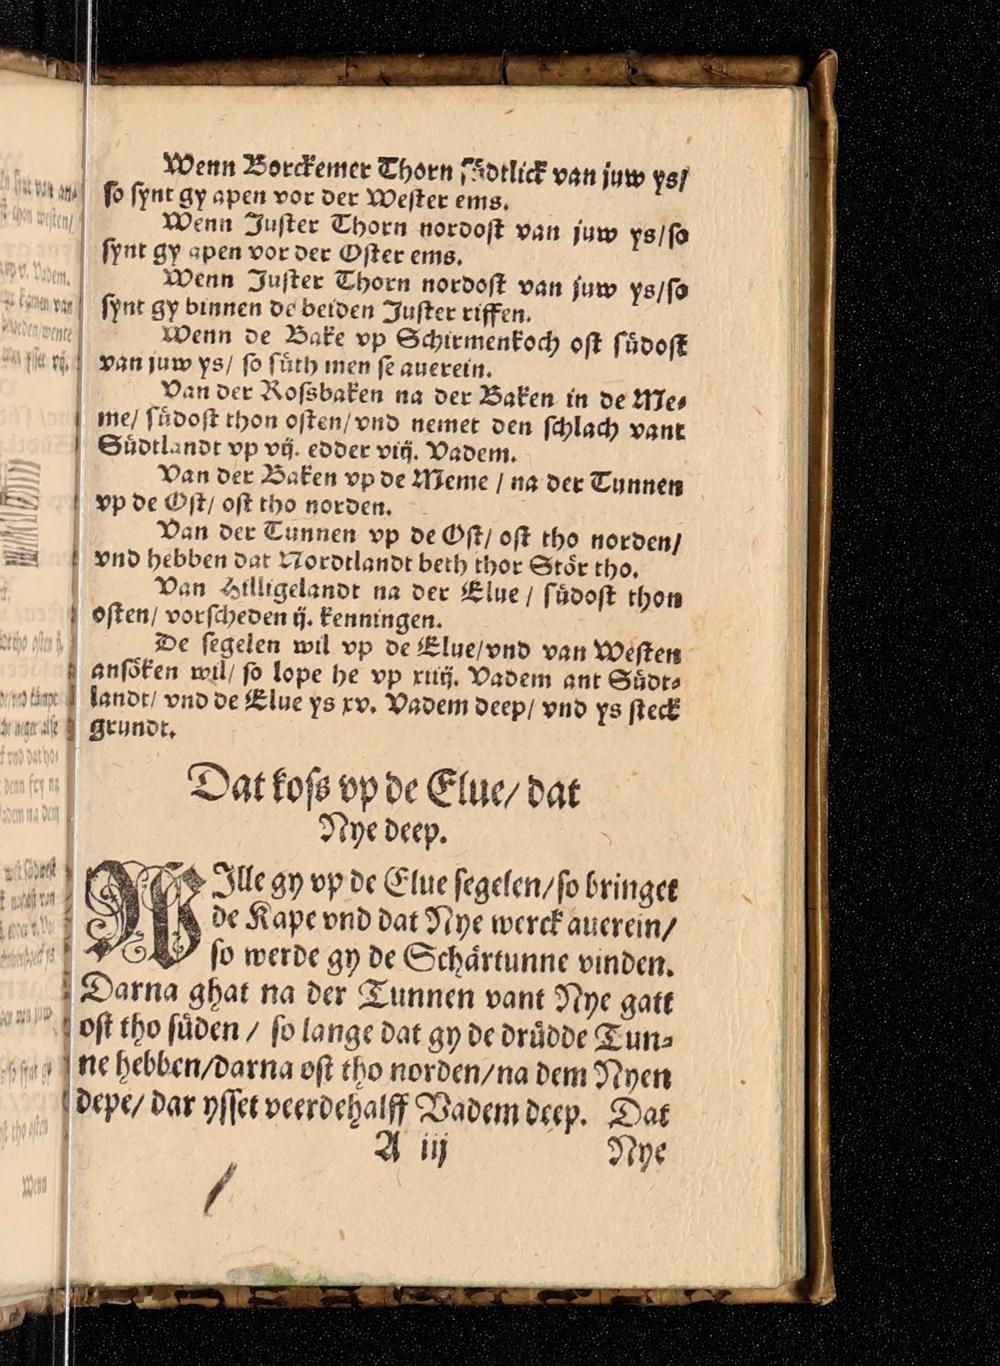 Wenn Borckemer Thorn südtlick van juw ys/
so synt gy apen vor der Wester ems.
Wenn Juster Thorn nordost van juw ys/so
synt gy apen vor der Oster ems.
Wenn Juster Thorn nordost van juw ys/so
synt gy binnen de beiden Juster riffen.
Wenn de Bake vp Schirmenkoch ost südost
van juw ys/ so süth men se auerein.
Van der Rossbaken na der Baken in de Me⸗
me/ südost thon osten/vnd nemet den schlach vant
Südtlandt vp vij. edder viij. Vadem.
Van der Baken vp de Meme / na der Tunnen
vp de Ost/ ost tho norden.
Van der Tunnen vp de Ost/ ost tho norden/
vnd hebben dat Nordtlandt beth thor Stör tho.
Van Hilligelandt na der Elue / südost thon
osten/ vorscheden ij. kenningen.
De segelen wil vp de Elue/vnd van Westen
ansöken wil/ so lope he vp xiiij. Vadem ant Südt⸗
landt/ vnd de Elue ys xv. Vadem deep/ vnd ys steck
grundt.
Dat koss vp de Elue/ dat
Nye deep.
WIlle gy vp de Elue segelen/so bringet
de Kape vnd dat Nye werck auerein/
so werde gy de Schärtunne vinden.
Darna ghat na der Tunnen vant Nye gatt
ost tho süden / so lange dat gy de drüdde Tun⸗
ne hebben/darna ost tho norden/na dem Nyen
depe/ dar ysset veerdehalff Vadem deep. Dat
A iij Nye